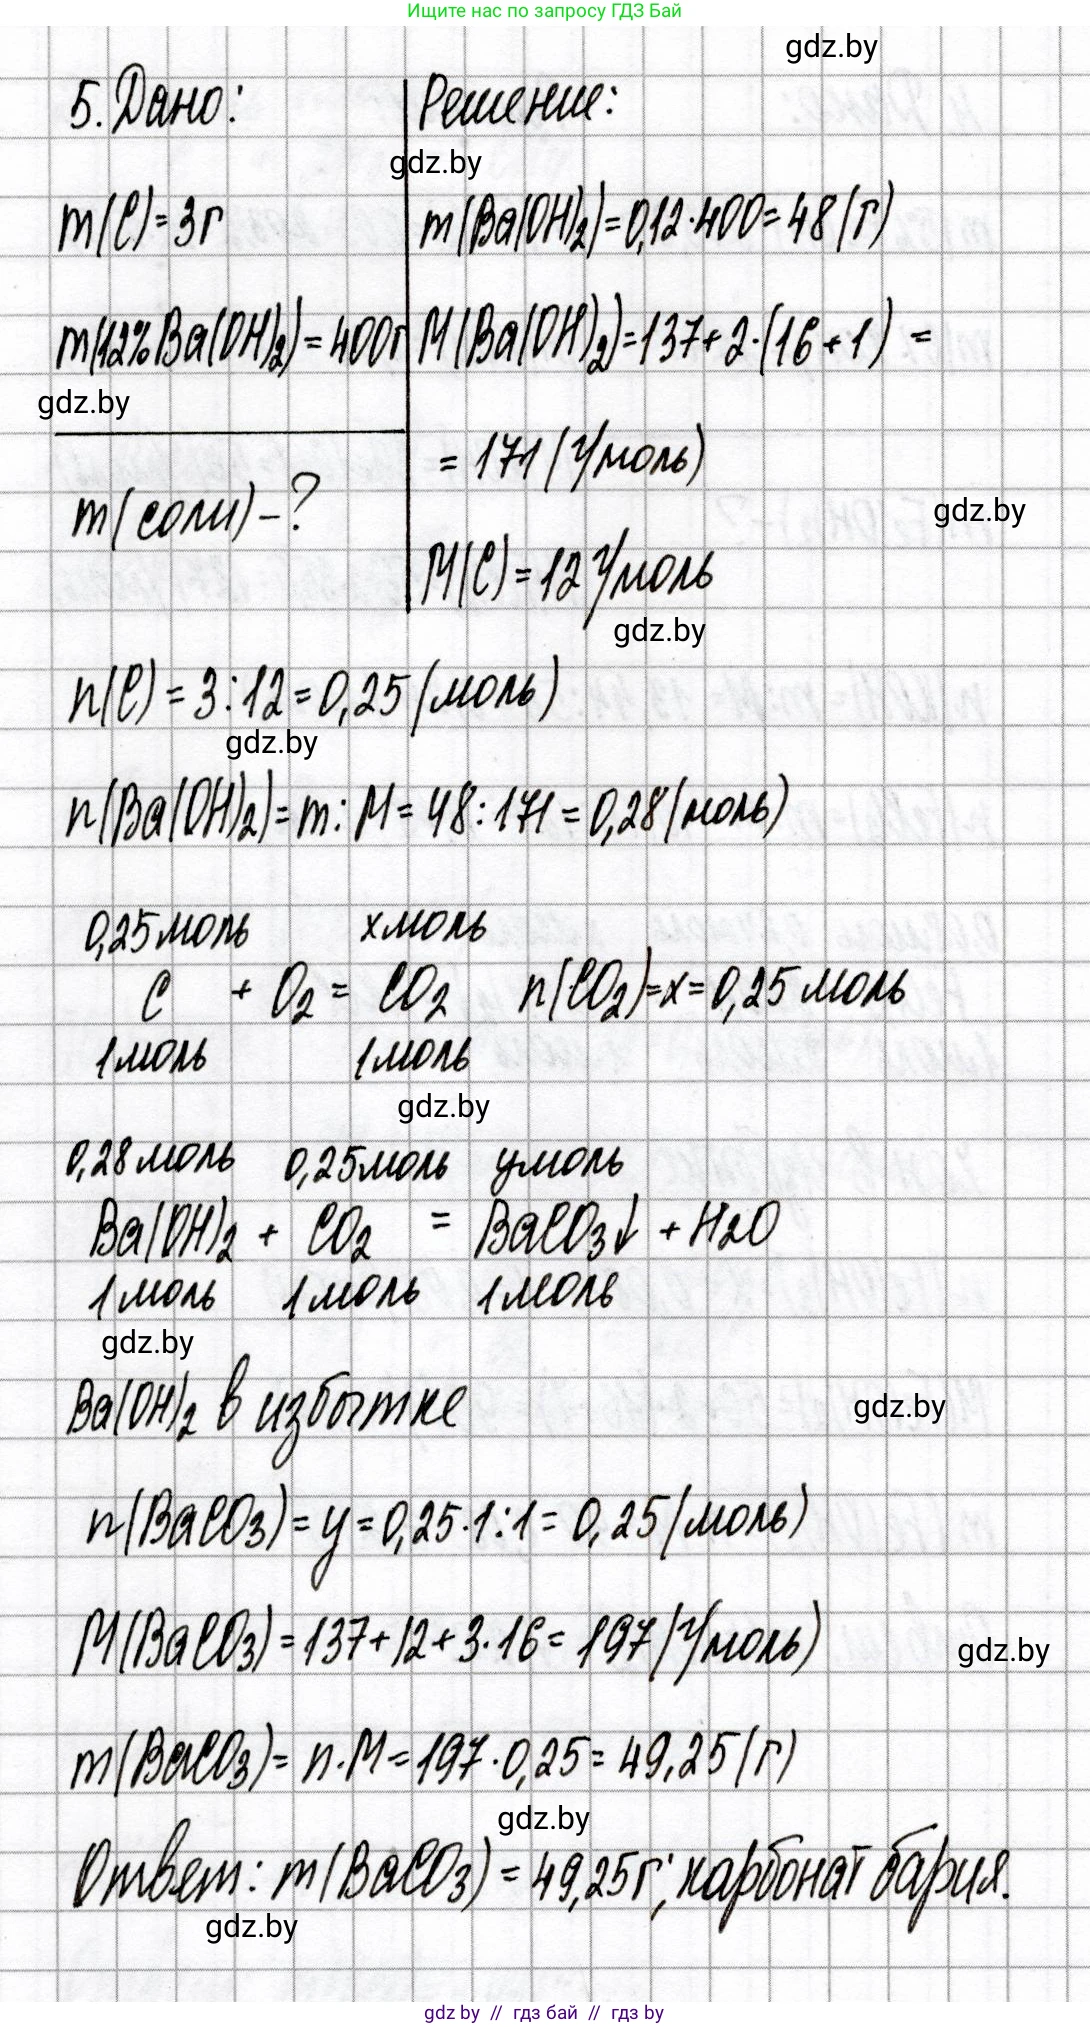 Ищите нас по запросу ГДЗ Бай
gdz.by
5. Дано:
Решение:
gdz.by
m(C)=3г
m(Ba(OH)2)=0,12·400=48(г)
m(12%Ba(OH)2)=400г
M(Ba(OH)2)=137+2·(16+1)=
gdz.by
=171(г/моль)
m(соли)-?
gdz.by
M(C)=12г/моль
gdz.by
n(C)=3:12=0,25(моль)
gdz.by
n(Ba(OH)2)=m:M=48:171=0,28(моль)
0,25моль хмоль
C + O2 = CO2 n(CO2)=x=0,25моль
1моль 1моль
gdz.by
0,28моль 0,25моль yмоль
Ba(OH)2 + CO2 = BaCO3↓ + H2O
1моль 1моль 1моль
gdz.by
Ba(OH)2 в избытке
gdz.by
n(BaCO3)=y=0,25·1:1=0,25(моль)
M(BaCO3)=137+12+3·16=197(г/моль)
gdz.by
m(BaCO3)=n·M=197·0,25=49,25(г)
gdz.by
Ответ: m(BaCO3)=49,25г; карбонат бария.
gdz.by
gdz by // гдз бай // гдз by